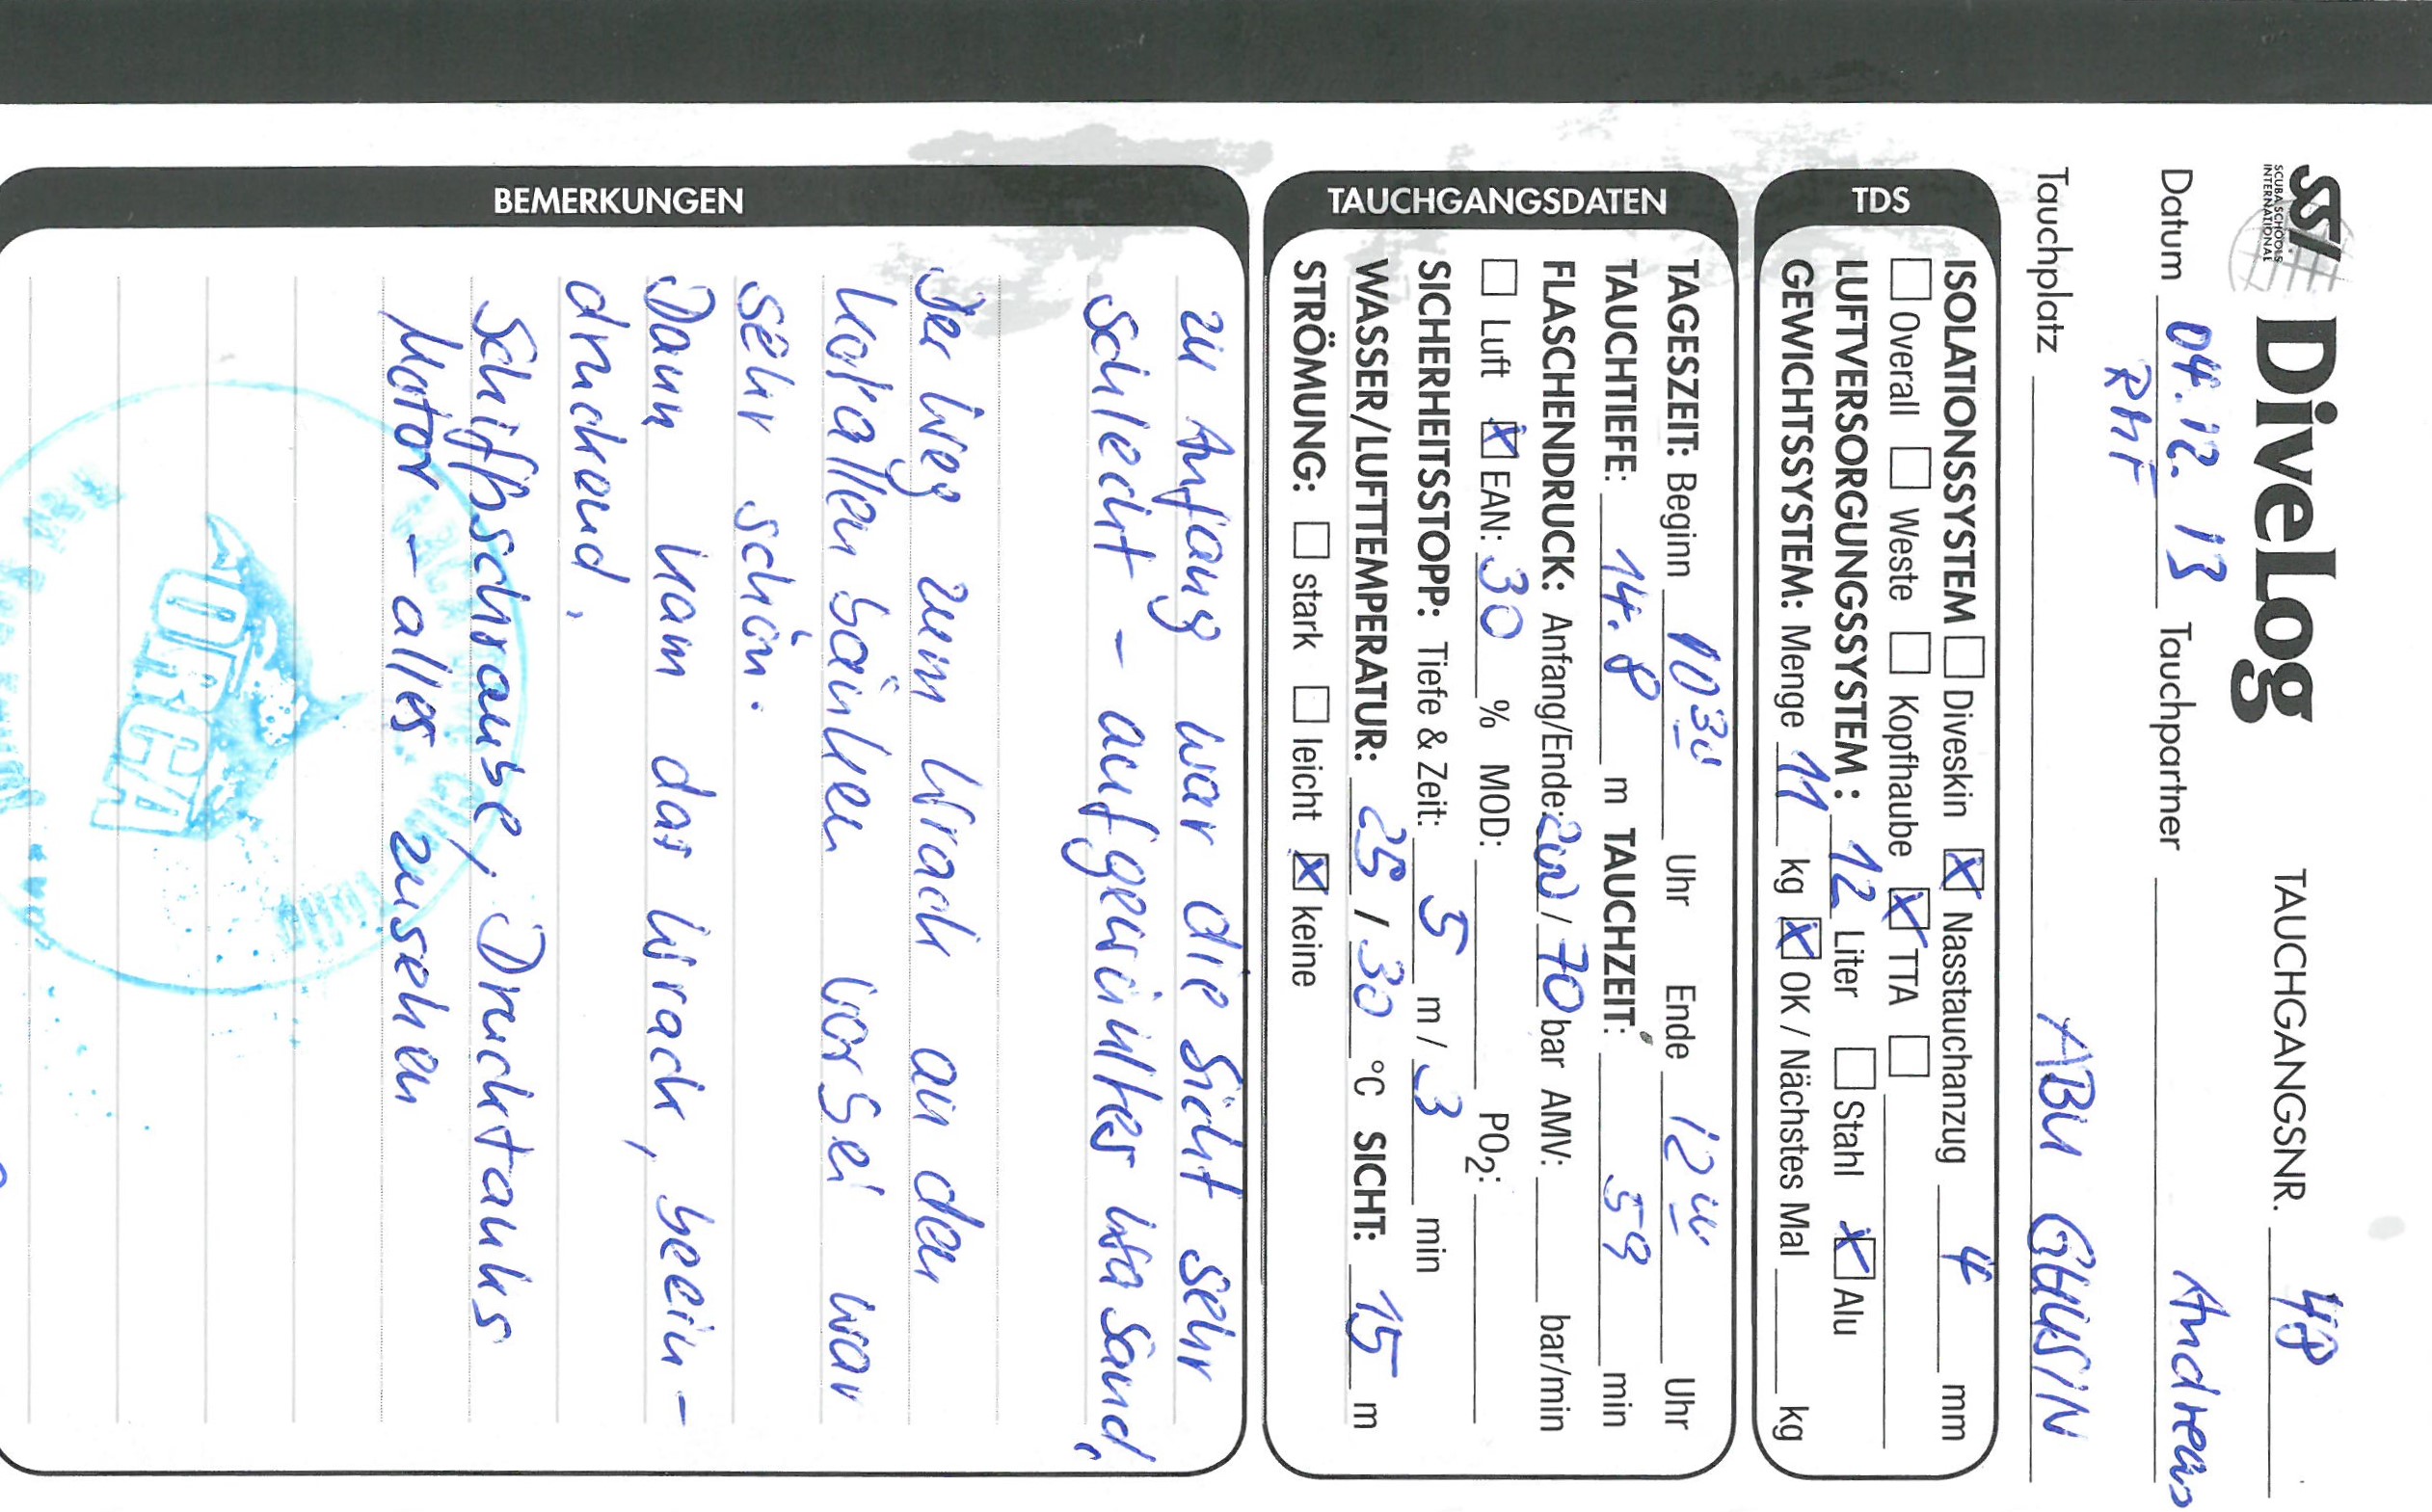 SSI DiveLog TAUCHGANGSNR. 48
SCUBA SCHOOLS
INTERNATIONAL
Datum 04.12.13 Tauchpartner Andreas
RMF
Tauchplatz ABU GHUSIN
TDS
ISOLATIONSSYSTEM ☐ Diveskin ☒ Nasstauchanzug 4 mm
☐ Overall ☐ Weste ☐ Kopfhaube ☒ TTA ☐
LUFTVERSORGUNGSSYSTEM: 12 Liter ☐ Stahl ☒ Alu
GEWICHTSSYSTEM: Menge 11 kg ☒ OK / Nächstes Mal kg
TAUCHGANGSDATEN
TAGESZEIT: Beginn 10 30 Uhr Ende 12 00 Uhr
TAUCHTIEFE: 14.8 m TAUCHZEIT: 59 min
FLASCHENDRUCK: Anfang/Ende: 200 / 70 bar AMV: bar/min
☐ Luft ☒ EAN: 30 % MOD: PO2:
SICHERHEITSSTOPP: Tiefe & Zeit: 5 m / 3 min
WASSER/LUFTTEMPERATUR: 25 / 30 °C SICHT: 15 m
STRÖMUNG: ☐ stark ☐ leicht ☒ keine
BEMERKUNGEN
zu Anfang war die Sicht sehr
schlecht - aufgewühlter Sand,
Der Weg zum Wrack an den
Korallenbänken vorbei war
sehr schön.
Dann kam das Wrack, beein-
druckend.
Schiffsschraube, Drucktanks
Motor - alles zusehen
ORCA